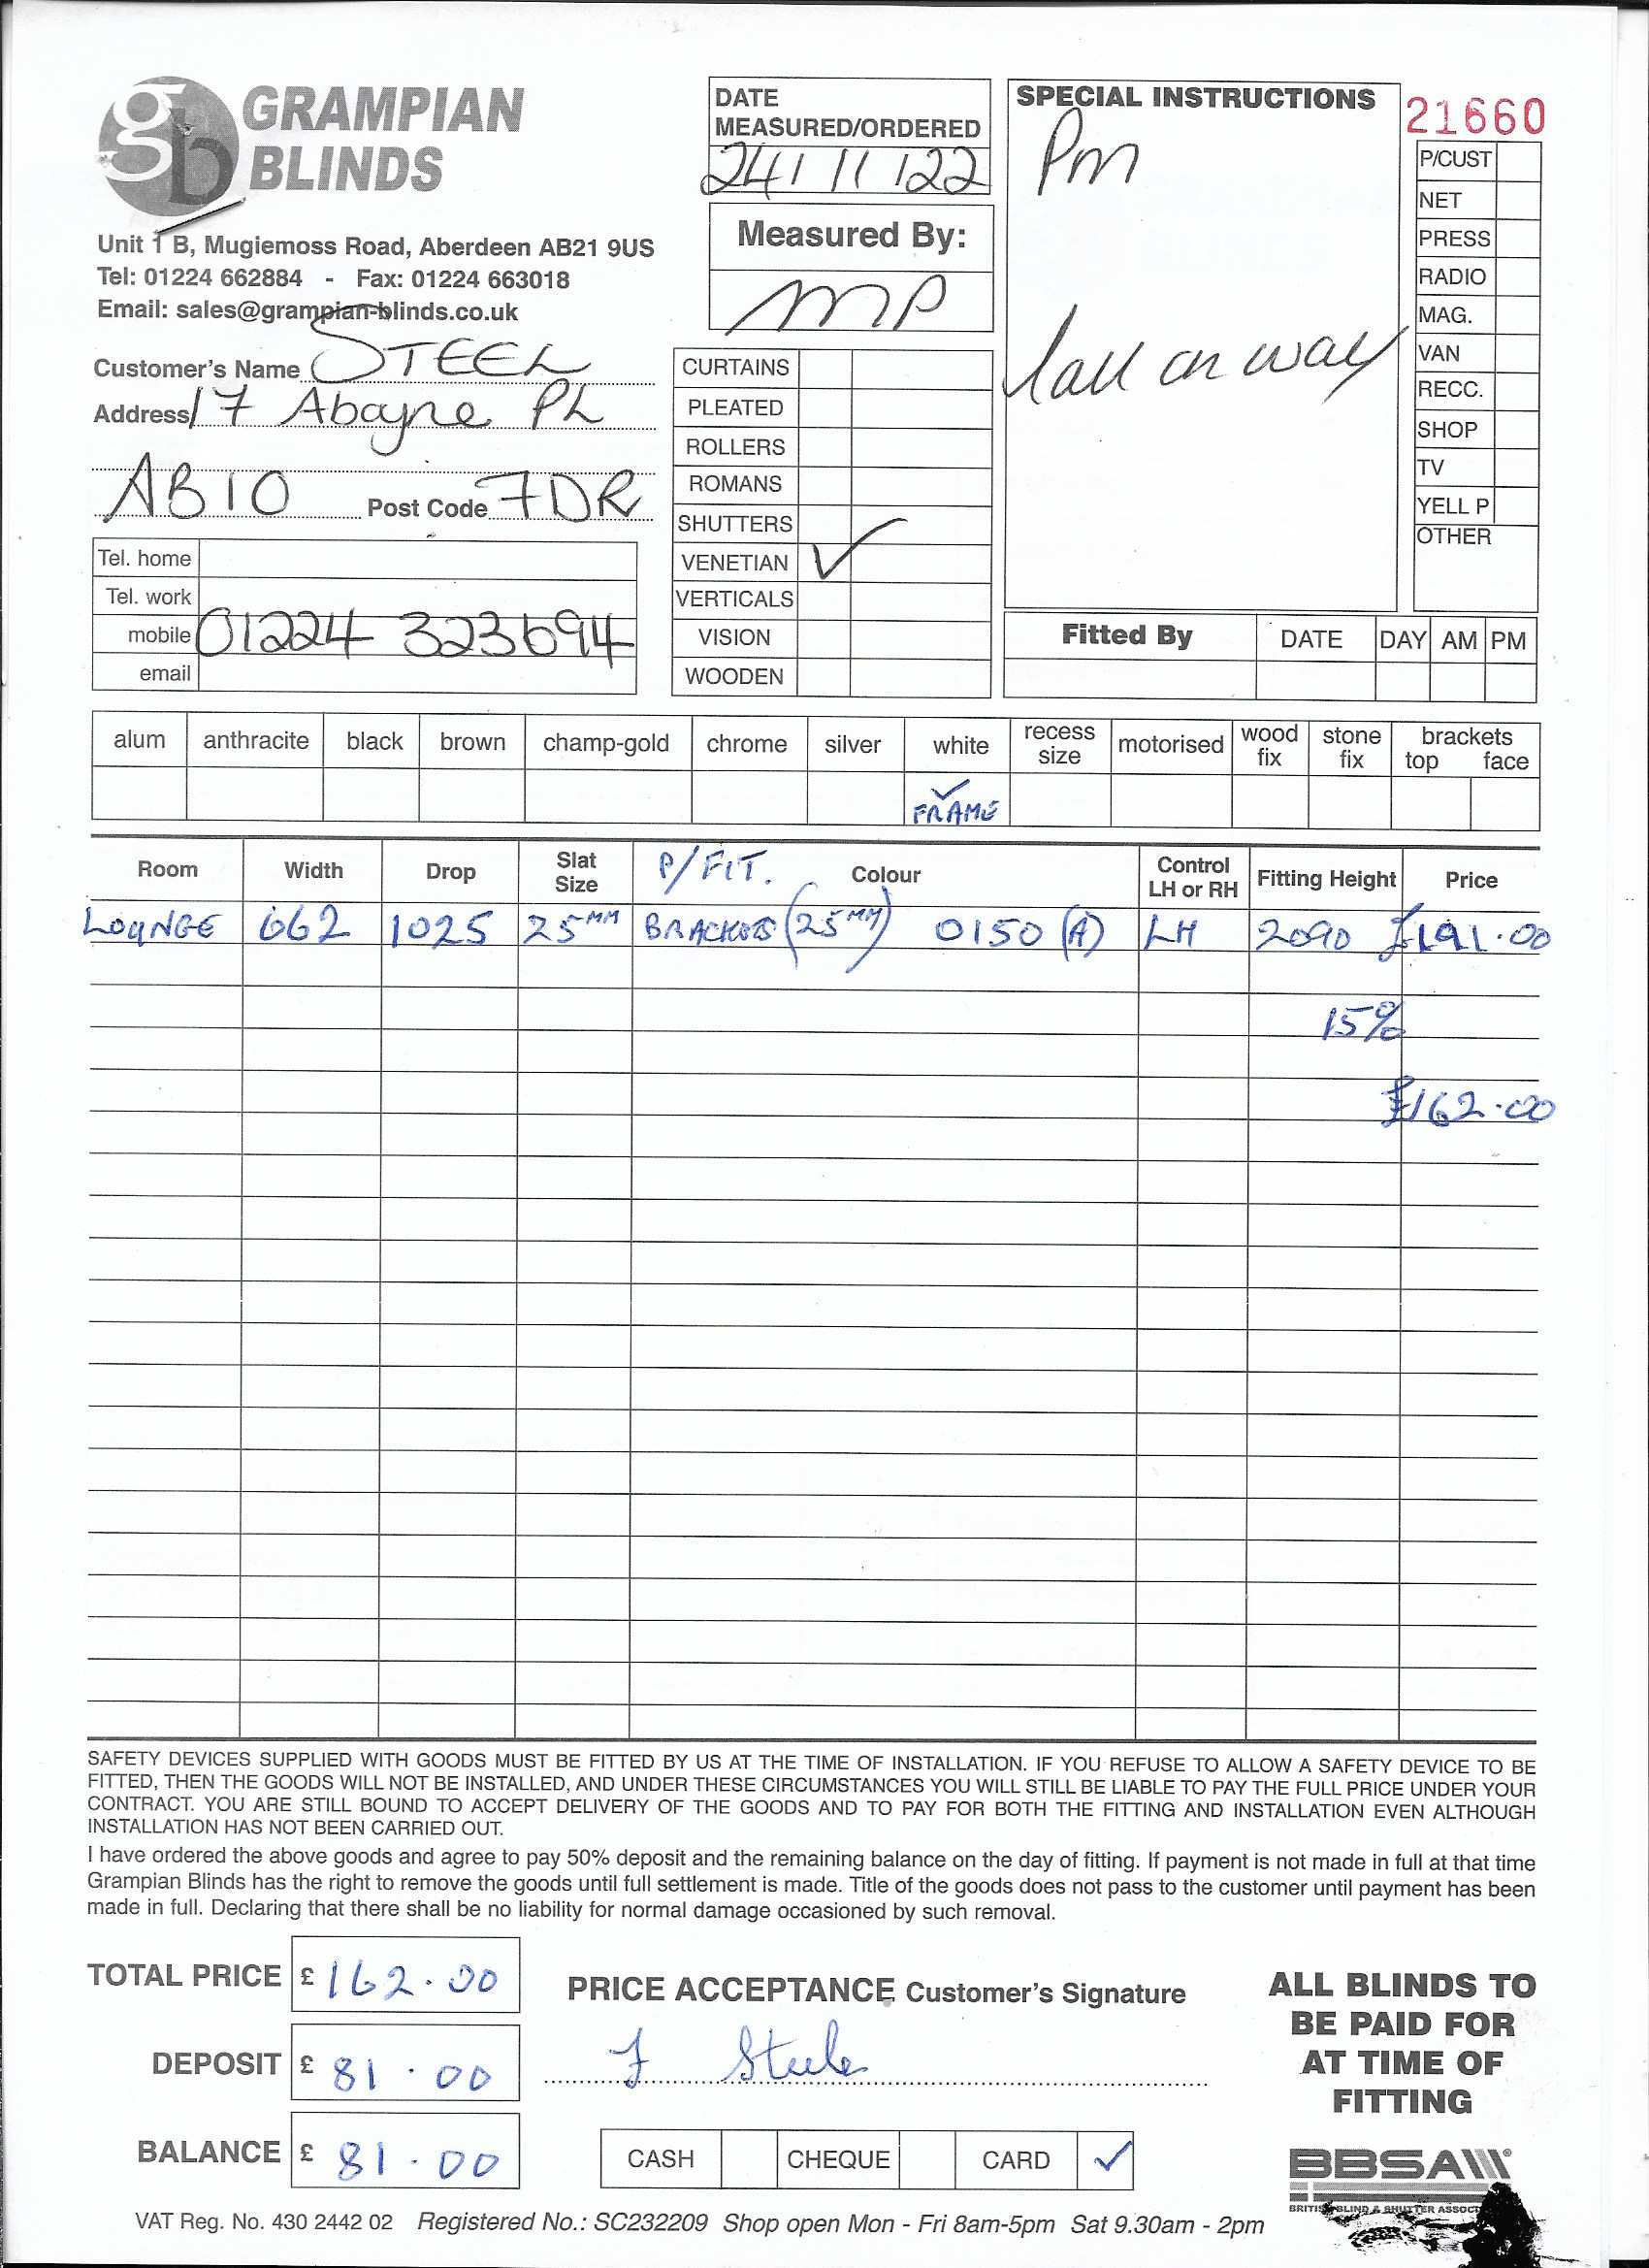 gb GRAMPIAN
BLINDS
Unit 1 B, Mugiemoss Road, Aberdeen AB21 9US
Tel: 01224 662884 - Fax: 01224 663018
Email: sales@grampian-blinds.co.uk
Customer's Name STEEL
Address 17 Aboyne PL
AB10 Post Code 7DR
Tel. home
Tel. work
mobile 01224 323694
email
DATE
MEASURED/ORDERED
24/11/22
Measured By:
MP
CURTAINS
PLEATED
ROLLERS
ROMANS
SHUTTERS
VENETIAN ✓
VERTICALS
VISION
WOODEN
SPECIAL INSTRUCTIONS
Pm
Call on way
21660
P/CUST
NET
PRESS
RADIO
MAG.
VAN
RECC.
SHOP
TV
YELL P
OTHER
Fitted By DATE DAY AM PM
alum anthracite black brown champ-gold chrome silver white recess size motorised wood fix stone fix brackets top face
✓
FRAME
Room Width Drop Slat Size P/FIT. Colour Control LH or RH Fitting Height Price
LOUNGE 662 1025 25MM BRACKETS (25MM) 0150 (A) LH 2090 £191.00
15%
£162.00
SAFETY DEVICES SUPPLIED WITH GOODS MUST BE FITTED BY US AT THE TIME OF INSTALLATION. IF YOU REFUSE TO ALLOW A SAFETY DEVICE TO BE
FITTED, THEN THE GOODS WILL NOT BE INSTALLED, AND UNDER THESE CIRCUMSTANCES YOU WILL STILL BE LIABLE TO PAY THE FULL PRICE UNDER YOUR
CONTRACT. YOU ARE STILL BOUND TO ACCEPT DELIVERY OF THE GOODS AND TO PAY FOR BOTH THE FITTING AND INSTALLATION EVEN ALTHOUGH
INSTALLATION HAS NOT BEEN CARRIED OUT.
I have ordered the above goods and agree to pay 50% deposit and the remaining balance on the day of fitting. If payment is not made in full at that time
Grampian Blinds has the right to remove the goods until full settlement is made. Title of the goods does not pass to the customer until payment has been
made in full. Declaring that there shall be no liability for normal damage occasioned by such removal.
TOTAL PRICE £ 162.00
DEPOSIT £ 81.00
BALANCE £ 81.00
PRICE ACCEPTANCE Customer's Signature
J Steele
CASH CHEQUE CARD ✓
ALL BLINDS TO
BE PAID FOR
AT TIME OF
FITTING
BBSA
BRITISH BLIND & SHUTTER
VAT Reg. No. 430 2442 02 Registered No.: SC232209 Shop open Mon - Fri 8am-5pm Sat 9.30am - 2pm